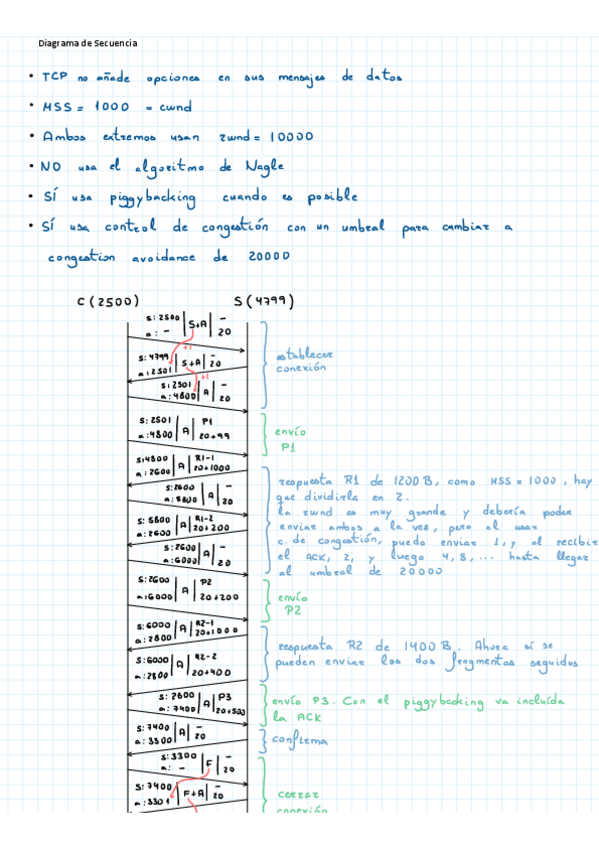 Diagrama de Secuencia
• TCP no añade opciones en sus mensajes de datos
• MSS = 1000 = cwnd
• Ambos extremos usan rwnd = 10000
• NO usa el algoritmo de Nagle
• SÍ usa piggybacking cuando es posible
• SÍ usa control de congestión con un umbral para cambiar a
congestion avoidance de 20000
C (2500) S (4799)
s: 2500 | S+A | -
a: - 20
+1
s: 4799 | S+A | -
a: 2501 20
+1
s: 2501 | A | -
a: 4800 20
establecer
conexión
s: 2501 | A | P1
a: 4800 20+99
envío
P1
s: 4800 | A | R1-1
a: 2600 20+1000
s: 2600 | A | -
a: 5800 20
s: 5800 | A | R1-2
a: 2600 20+200
s: 2600 | A | -
a: 6000 20
respuesta R1 de 1200 B, como MSS = 1000, hay
que dividirla en 2.
la rwnd es muy grande y debería poder
enviar ambos a la vez, pero al usar
c. de congestión, puedo enviar 1, y al recibir
el ACK, 2, y luego 4, 8, ... hasta llegar
al umbral de 20000
s: 2600 | A | P2
a: 6000 20+200
envío
P2
s: 6000 | A | R2-1
a: 2800 20+1000
s: 6000 | A | R2-2
a: 2800 20+400
respuesta R2 de 1400 B. Ahora sí se
pueden enviar los dos fragmentos seguidos
s: 2800 | A | P3
a: 7400 20+500
envío P3. Con el piggybacking va incluída
la ACK
s: 7400 | A | -
a: 3300 20
confirma
s: 3300 | F | -
a: - 20
s: 7400 | F+A | -
a: 3301 20
cerrar
conexión